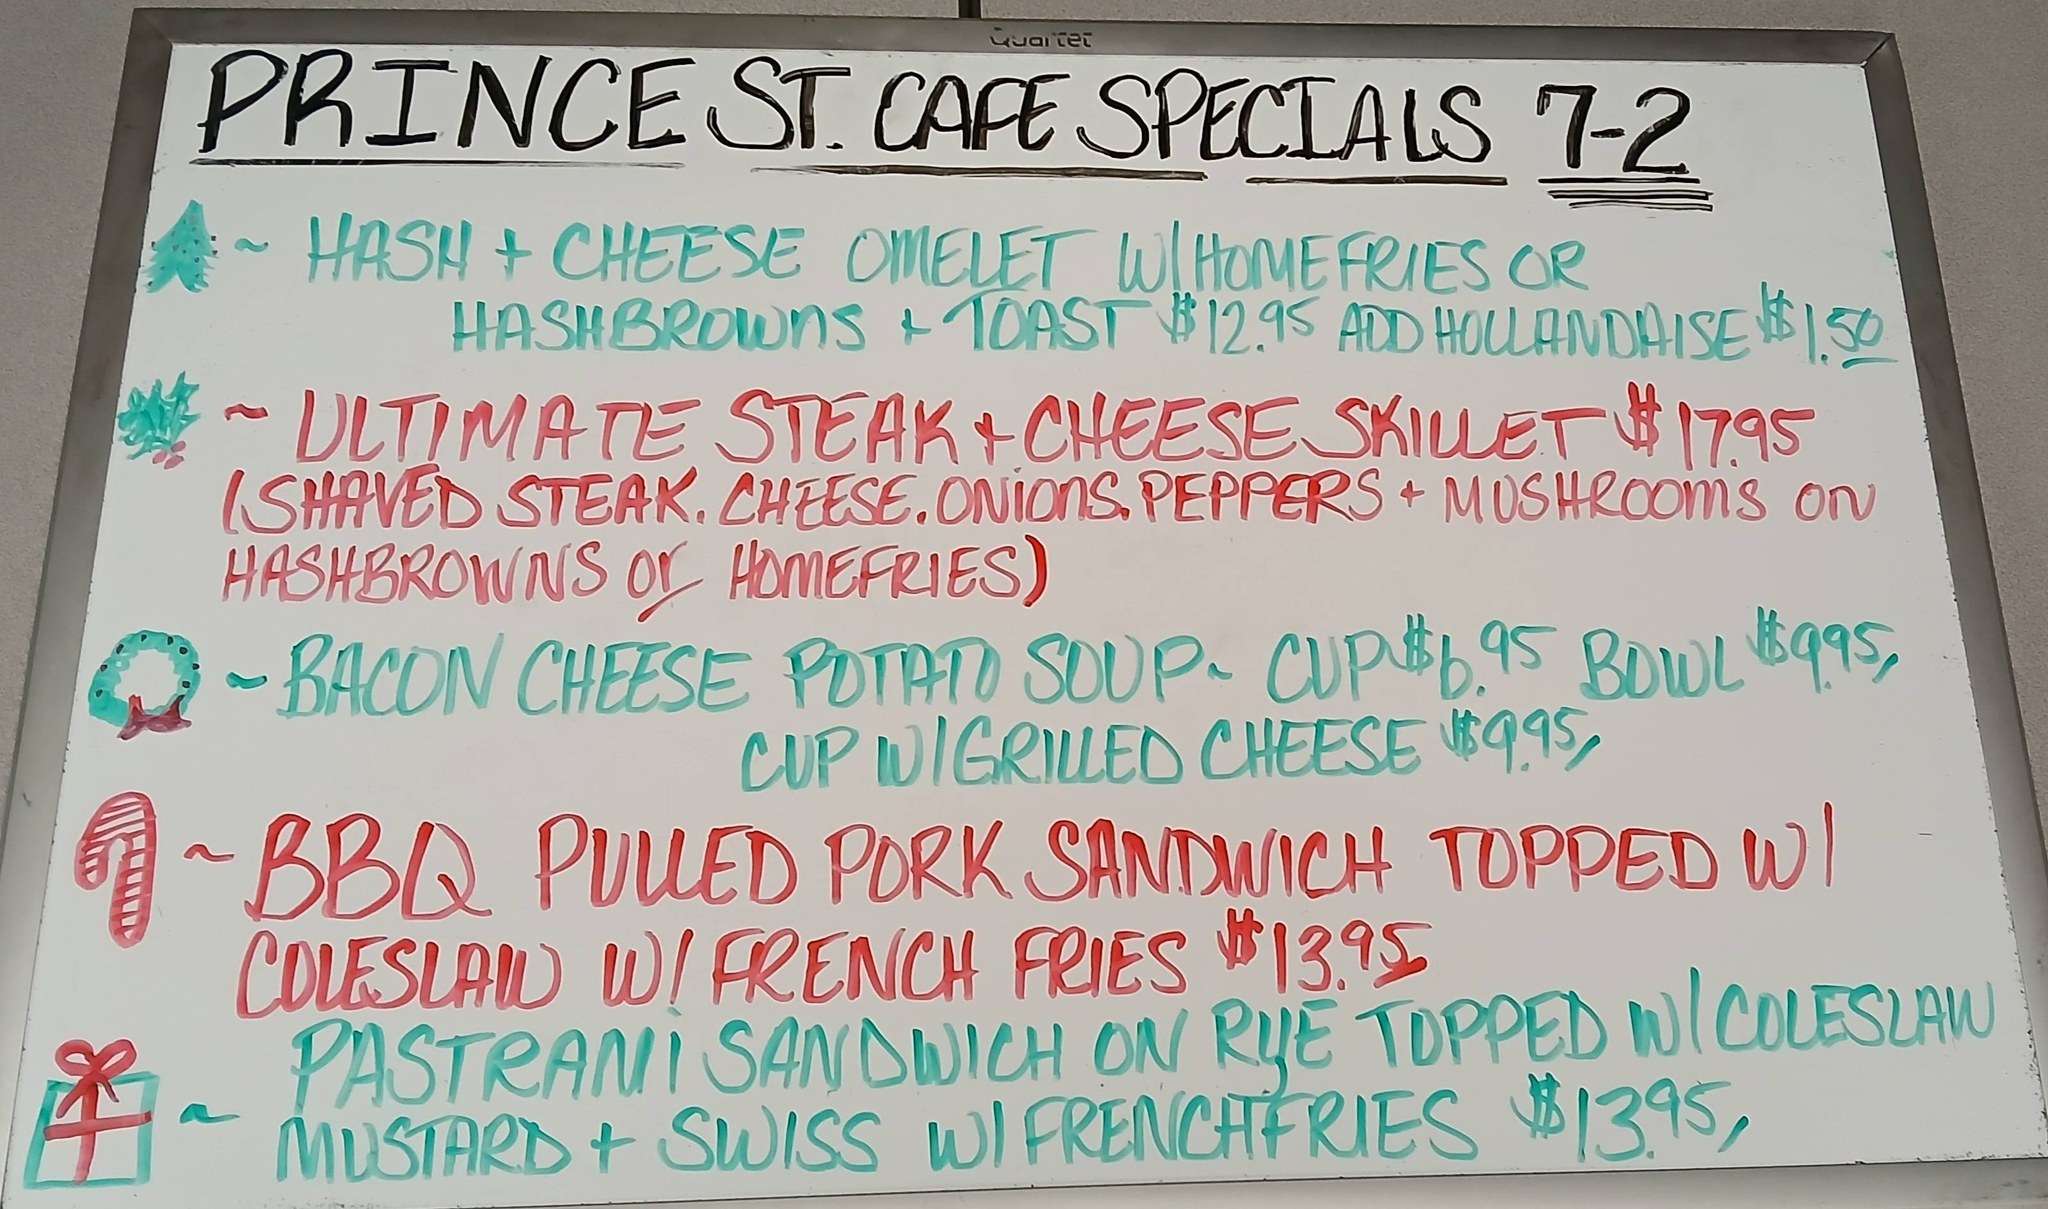 Quartet
PRINCE ST. CAFE SPECIALS 7-2
~ HASH + CHEESE OMELET W/HOMEFRIES OR
HASHBROWNS + TOAST $12.95 ADD HOLLANDAISE $1.50
~ ULTIMATE STEAK + CHEESE SKILLET $17.95
(SHAVED STEAK. CHEESE. ONIONS. PEPPERS + MUSHROOMS ON
HASHBROWNS or HOMEFRIES)
~ BACON CHEESE POTATO SOUP~ CUP $6.95 BOWL $9.95,
CUP W/GRILLED CHEESE $9.95,
~ BBQ PULLED PORK SANDWICH TOPPED W/
COLESLAW W/ FRENCH FRIES $13.95
~ PASTRAMI SANDWICH ON RYE TOPPED W/COLESLAW
MUSTARD + SWISS W/FRENCHFRIES $13.95,